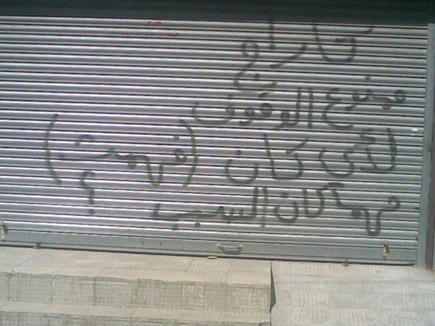 كاراج
ممنوع الوقوف
لأي كان (فهمت)
مهما كان السبب ؟